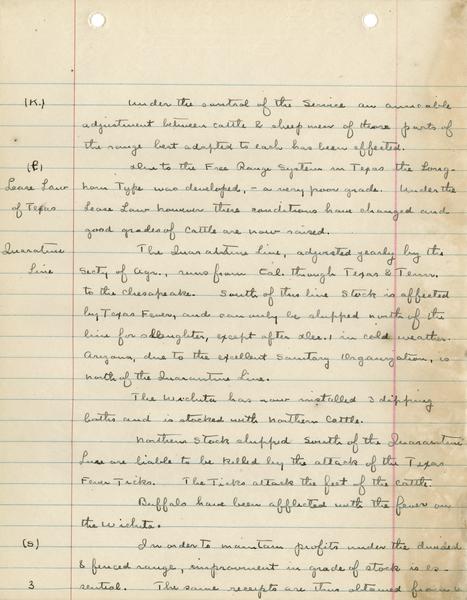 (K.) Under the control of the Service an amicable
adjustment between cattle & sheep men of those parts of
the range best adapted to each has been effected.
(L) Due to the Free Range System in Texas the Long-
Lease Law horn Type was developed, - a very poor grade. Under the
of Texas Lease Law however these conditions have changed and
good grades of cattle are now raised.
Quarantine The Quarantine Line, adjusted yearly by the
Line Secty of Agr., runs from Cal. through Texas & Tenn.
to the Chesapeake. South of this line Stock is affected
by Texas Fever, and can only be shipped north of the
line for slaughter, except after Dec. 1 in cold weather.
Arizona, due to the excellent Sanitary Organization, is
north of the Quarantine Line.
The Wichita has now installed 3 dipping
baths and is stocked with Northern Cattle.
Northern Stock shipped South of the Quarantine
Line are liable to be killed by the attack of the Texas
Fever Ticks. The Ticks attack the feet of the cattle.
Buffalo have been afflicted with the fever on
the Wichita.
(S) In order to maintain profits under the divided
& fenced range, improvement in grade of stock is es-
3 sential. The same receipts are thus obtained from